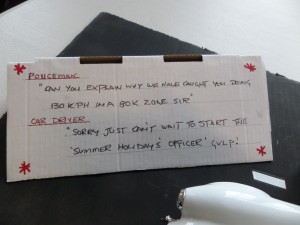 POLICEMAN
"CAN YOU EXPLAIN WHY WE HAVE CAUGHT YOU DOING
130 KPH IN A 80K ZONE SIR"
CAR DRIVER
"SORRY JUST CAN'T WAIT TO START THE
'SUMMER HOLIDAYS' OFFICER' GULP!